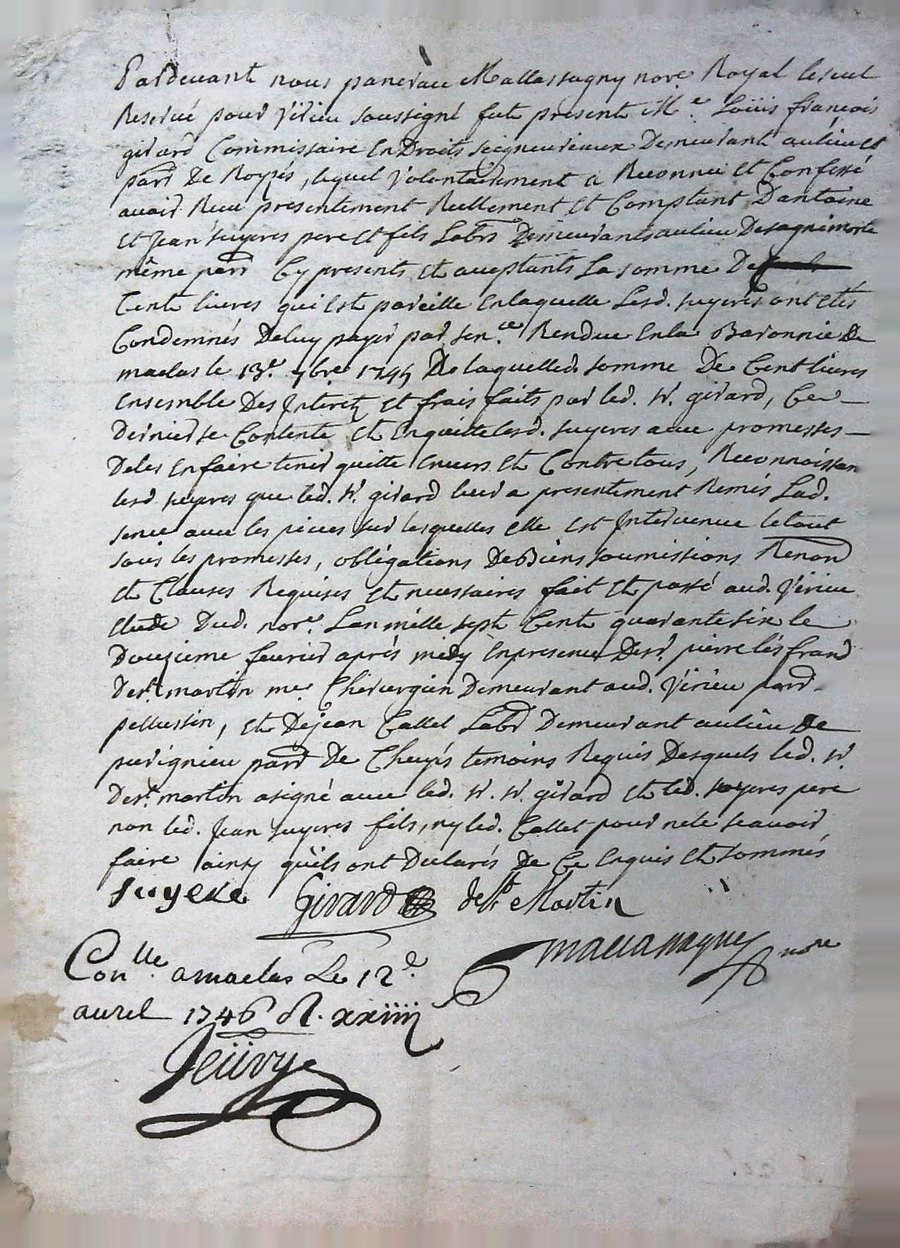 Pardevant nous pancrace Mallassagny nore Royal le seul
Reservé pour Virieu soussigné fut présent Me. Loüis françois
girard Commissaire En Droits Seigneuriaux Demeurant au lieu et
parr De Royzés, lequel Volontairement a Reconnu Et Confessé
avoir Receu presentement Reellement Et Comptant D'antoine
Et Jean suyeres pere et fils Labrs Demeurants au lieu De
même parr Cy presents Et aceptants La somme De
Cent livres qui Est pareille En laquelle Lesd. suyeres ont Etés
Condemnés De luy payer par sence. Rendue En la Baronnie De
maclas le 13e. 7bre 1745 De laquelle d. somme De Cent livres
Ensemble Des Interetz Et frais faits par led. sr. girard, Ce
Dernier se Contente Et En quitte lesd. suyeres avec promesses
De les En faire tenir quitte Envers Et Contre tous, Reconnoissan
lesd suyeres que led. sr. girard leur a presentement Remis Lad.
sence avec les pieces sur lesquelles Elle Est Intervenue le tout
sous les promesses, obligations De Biens soumissions Renon
Et Clauses Requises Et necessaires fait Et passé aud. Virieu
Etude Dud. nore. L'an mille sept Cent quarante six le
Douzieme fevrier aprés midy En presence De sr. pierre
De st. martin me Chirurgien Demeurant aud. Virieu parr
pellussin, Et De jean Callet Labr Demeurant au lieu De
purignieu parr De Cheyés temoins Requis Desquels led. sr.
De st. martin a signé avec led. sr. sr. girard Et led. suyeres pere
non led. Jean suyeres fils, ny led. Callet pour ne le scavoir
faire ainsy qu'ils ont Declarés De Ce Enquis Et sommés
suyere Girard de St Martin
nore
Conlle a maclas Le 12e
avril 1746 R. xxiiii